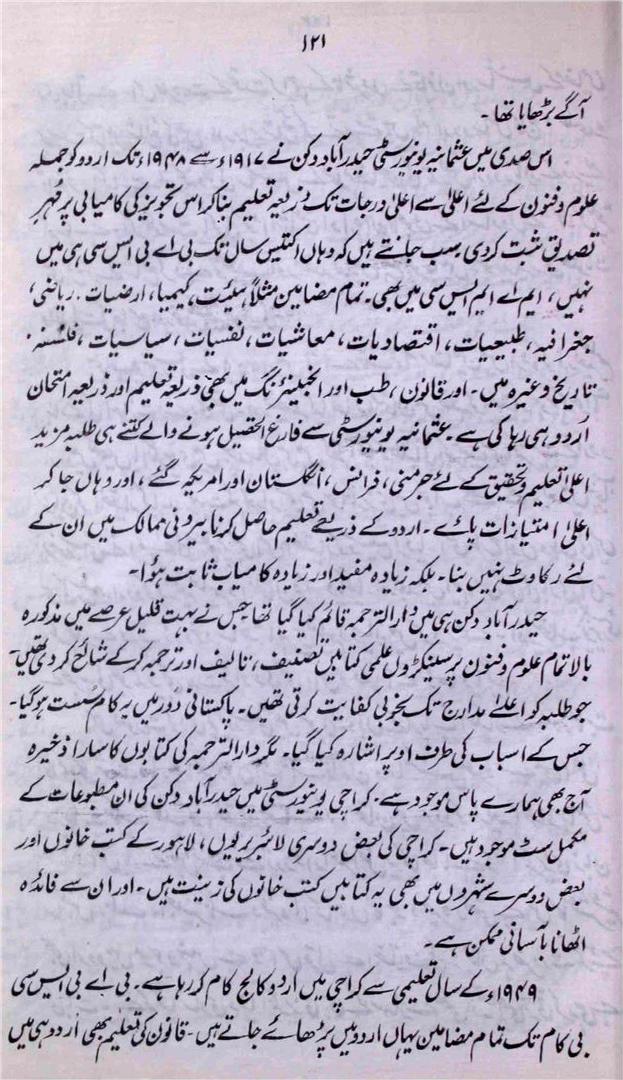 ۱۲۱
آگے بڑھایا تھا۔
اس صدی میں عثمانیہ یونیورسٹی حیدرآباد دکن نے ۱۹۱۷ء سے ۱۹۴۸ء تک اردو کو جملہ
علوم و فنون کے لئے اعلیٰ سے اعلیٰ درجات تک ذریعہ تعلیم بنا کر اس تجویز کی کامیابی پر مُہر
تصدیق ثبت کردی سب جانتے ہیں کہ وہاں اکتیس سال تک بی اے بی ایس سی ہی میں
نہیں، ایم اے ایم ایس سی میں بھی۔ تمام مضامین مثلاً ہیئت، کیمیا، ارضیات، ریاضی،
جغرافیہ، طبیعیات، اقتصادیات، معاشیات، نفسیات، سیاسیات، فلسفہ،
تاریخ وغیرہ میں۔ اور قانون، طب اور انجینئرنگ میں بھی ذریعۂ تعلیم اور ذریعۂ امتحان
اُردو ہی رہا کی ہے۔ عثمانیہ یونیورسٹی سے فارغ التحصیل ہونے والے کتنے ہی طلبہ مزید
اعلیٰ تعلیم و تحقیق کے لئے جرمنی، فرانس، انگلستان اور امریکہ گئے، اور وہاں جا کر
اعلیٰ امتیازات پائے۔ اردو کے ذریعے تعلیم حاصل کرنا بیرونی ممالک میں ان کے
لئے رکاوٹ نہیں بنا۔ بلکہ زیادہ مفید اور زیادہ کامیاب ثابت ہؤا۔
حیدرآباد دکن ہی میں دارالترجمہ قائم کیا گیا تھا جس نے بہت قلیل عرصے میں مذکورہ
بالا تمام علوم و فنون پر سینکڑوں علمی کتابیں تصنیف، تالیف اور ترجمہ کر کے شائع کر دی تھیں۔
جو طلبہ کو اعلےٰ مدارج تک بخوبی کفایت کرتی تھیں۔ پاکستانی دَور میں یہ کام سُست ہو گیا۔
جس کے اسباب کی طرف اوپر اشارہ کیا گیا۔ مگر دارالترجمہ کی کتابوں کا سارا ذخیرہ
آج بھی ہمارے پاس موجود ہے۔ کراچی یونیورسٹی میں حیدرآباد دکن کی ان مطبوعات کے
مکمل سٹ موجود ہیں۔ کراچی کی بعض دوسری لائبریریوں، لاہور کے کتب خانوں اور
بعض دوسرے شہروں میں بھی یہ کتابیں کتب خانوں کی زینت ہیں۔ اور ان سے فائدہ
اٹھانا بآسانی ممکن ہے۔
۱۹۴۹ء کے سال تعلیمی سے کراچی میں اردو کالج کام کر رہا ہے۔ بی اے بی ایس سی
بی کام تک تمام مضامین یہاں اردو میں پڑھائے جاتے ہیں۔ قانون کی تعلیم بھی اُردو ہی میں